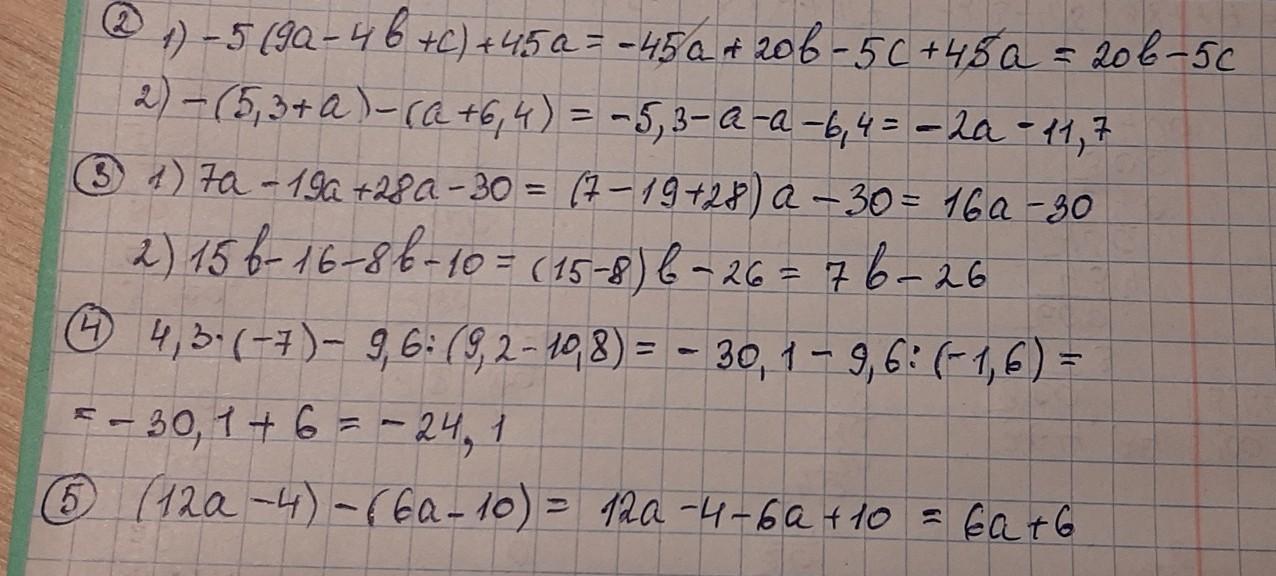 ② 1) -5(9a-4b+c)+45a = -45a+20b-5c+45a = 20b-5c
2) -(5,3+a)-(a+6,4) = -5,3-a-a-6,4 = -2a-11,7
③ 1) 7a-19a+28a-30 = (7-19+28)a-30 = 16a-30
2) 15b-16-8b-10 = (15-8)b-26 = 7b-26
④ 4,3·(-7)-9,6:(9,2-10,8) = -30,1-9,6:(-1,6) =
= -30,1+6 = -24,1
⑤ (12a-4)-(6a-10) = 12a-4-6a+10 = 6a+6